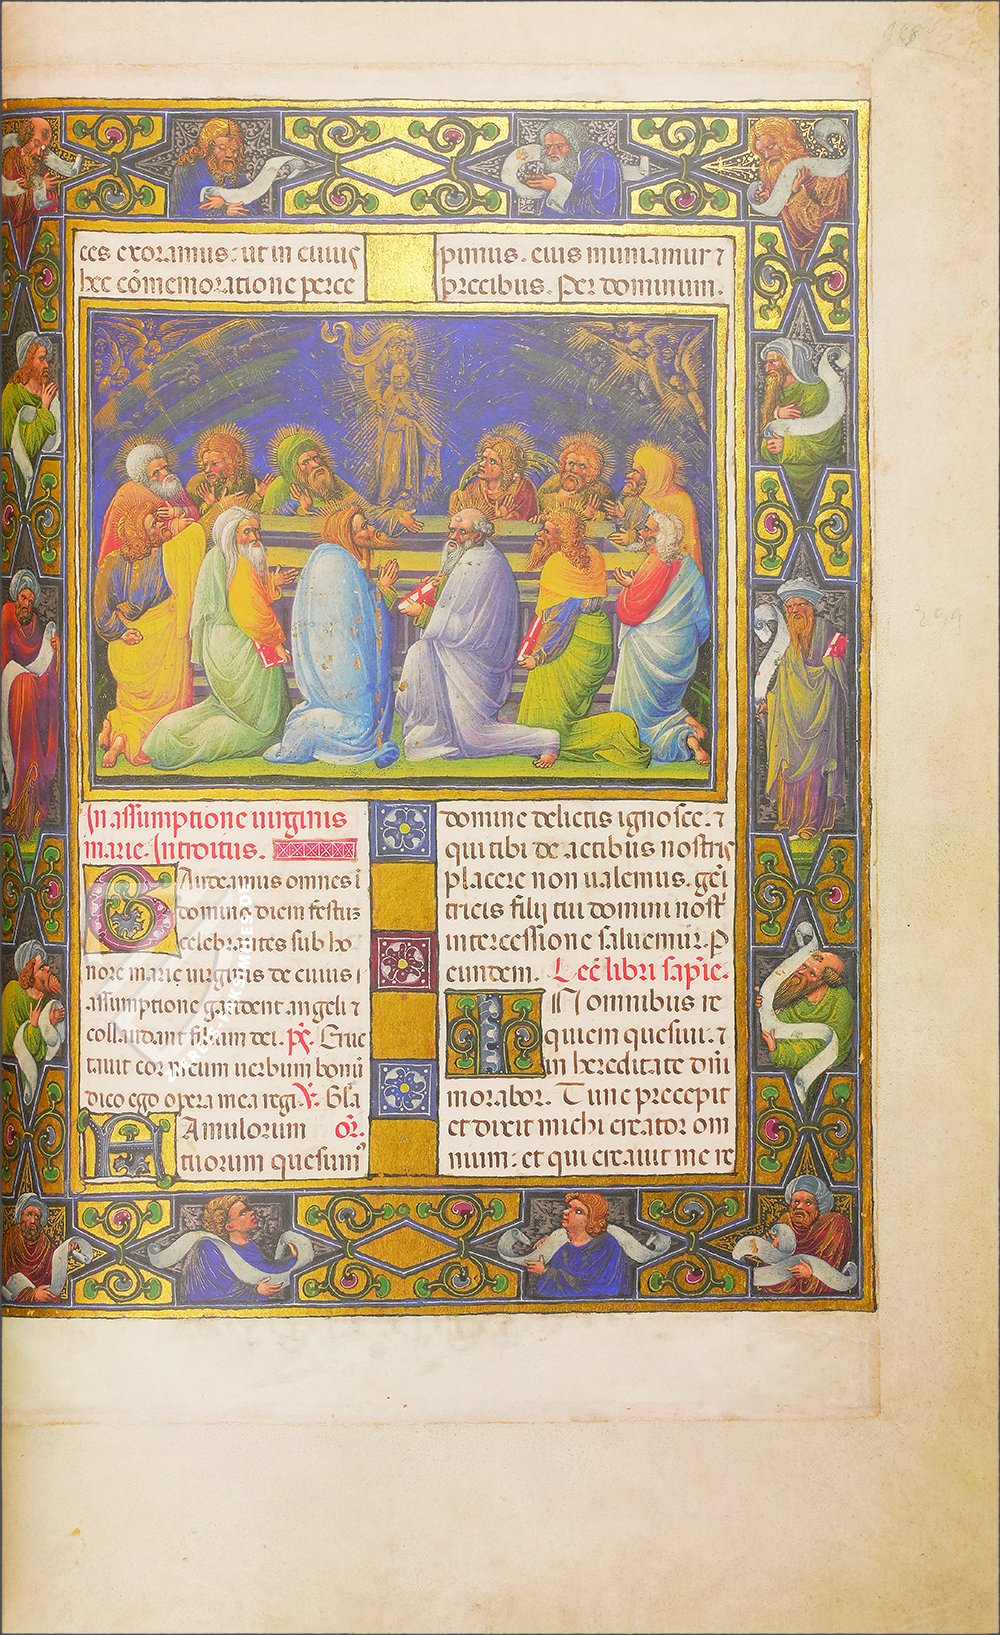 ces exoramus: ut in cuius
hec cōmemoratione perce
pimus. eius muniamur ⁊
precibus. Per dominum.
In assumptione uirginis
marie. Introitus.
GAudeamus omnes ī
domino diem festuz
celebrantes sub ho
nore marie uirginis de cuius
assumptione gaudent angeli ⁊
collaudant filium dei. p̄s. Eruc
tauit cor meum uerbum bonū
dico ego opera mea regi. V. Gl̄a
FAmulorum or̄.
tuorum quesum᾽
domine delictis ignosce. ⁊
qui tibi de actibus nostris
placere non ualemus. geī
tricis filij tui domini nost᾽
intercessione saluemur. P
eundem. Lec̄ libri sapīe.
IN omnibus re
quiem quesiui. ⁊
in hereditate dn̄i
morabor. Tunc precepit
et dixit michi creator om
nium: et qui creauit me re
294